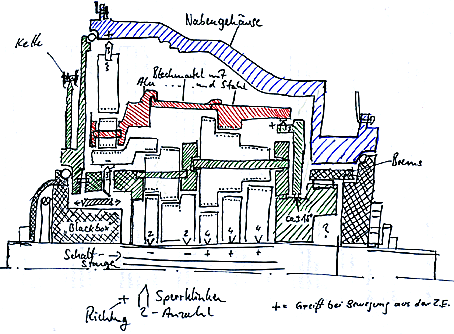 Nabengehäuse
Kette
Blechmantel mit
Alu ...... und Stahl
+
Brems
Blackbox
ca 3.16°
?
2 2 4 4 4
Schalt
Stange
- - + + +
Richtung + Sperrklinken
2 - Anzahl
+ = Greift bei Bewegung aus der Z.E.